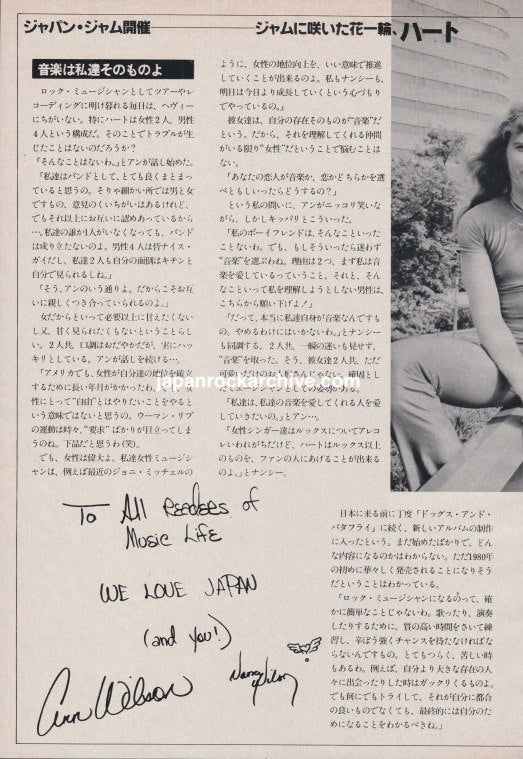 ジャパン・ジャム開催
ジャムに咲いた花一輪、ハート
音楽は私達そのものよ
ロック・ミュージシャンとしてツアーやレ
コーディングに明け暮れる毎日は、ヘヴィー
にちがいない。特にハートは女性2人、男性
4人という構成だ。そのことでトラブルが生
じたことはないのだろうか？
「そんなことはないわ。」とアンが話し始めた。
「私達はバンドとして、とても良くまとまっ
ていると思うの。そりゃ細かい所では男と女
ですもの、意見のくいちがいはあるけれど、
でもそれ以上にお互いに認めあっているから
…。私達の誰か1人がいなくなっても、バンド
は成り立たないのよ。男性4人は皆ナイス・
ガイだし、私達2人も自分の面倒はキチンと
自分で見られるしね。」
「そう、アンのいう通りよ。だからこそお互
いに親しくつき合っていられるのよ。」
女だからといって必要以上に甘えたくない
し又、甘く見られたくもないということらし
い。2人共、口調はおだやかだが、実にハッ
キリとしている。アンが話を続ける…。
「アメリカでも、女性が自分達の地位を確立
するために長い年月がかかったわ。でも、女
性にとって"自由"とはやりたいことをやると
いう意味ではないと思うの。ウーマン・リブ
の運動は時々、"要求"ばかりが目立ってしま
うのね。下品だと思うわ(笑)。
でも、女性は偉大よ。私達女性ミュージシ
ャンは、例えば最近のジョニ・ミッチェルの
ように、女性の地位向上を、いい意味で推進
していくことが出来るのよ。私もナンシーも、
明日は今日より成長していくという心づもり
でやっているの。」
彼女達は、自分の存在そのものが"音楽"だ
という。だから、それを理解してくれる仲間
がいる限り"女性"だということで悩むことは
ない。
「あなたの恋人が音楽か、恋かどちらかを選
べともしいったらどうするの？」
という私の問いに、アンがニッコリ笑いな
がら、しかしキッパリとこういった。
「私のボーイフレンドは、そんなこといった
ことないわ。でも、もしそういったら迷わず
"音楽"を選ぶわね。理由は2つ、まず私は音
楽を愛しているっていうこと。それと、そん
なこといって私を理解しようとしない男性は
こちらから願い下げよ！」
「だって、本当に私達自身が音楽なんですも
の。やめるわけにはいかないわ。」とナンシー
も同調する。2人共、一瞬の迷いも見せず、
"音楽"を取った。そう、彼女達2人共、ただ
可愛いだけのお人形さんじゃない。確固とし
たミュージシャンとしての
「私達は、私達の音楽を愛してくれる人を愛
していきたいの。」とアン…。
「女性シンガー達はルックスについてアレコ
レいわれがちだけど、ハートはルックス以上
のものを、ファンの人にあげることが出来る
のよ。」とナンシー。
japanrockarchive.com
To All Readers of
Music Life
WE LOVE JAPAN
(and you!)
Ann Wilson
Nancy Wilson
日本に来る前に丁度「ドッグス・アンド・
バタフライ」に続く、新しいアルバムの制作
に入ったという。まだ始めたばかりで、どん
な内容になるのかはわからない。ただ1980年
の初めに華々しく発売されることになりそう
だということはわかっている。
「ロック・ミュージシャンになるのって、確
かに簡単なことじゃないわ。歌ったり、演奏
したりするために、質の高い時間をさいて練
習し、辛ぼう強くチャンスを待たなければな
らないんですもの。とてもつらく、苦しい時
もあるわ。例えば、自分より大きな存在の人
々に出会ったりした時はガックリくるものよ。
でも何にでもトライして、それが自分に都合
の良いものでなくても、最終的には自分のた
めになることをわかるべきね。」